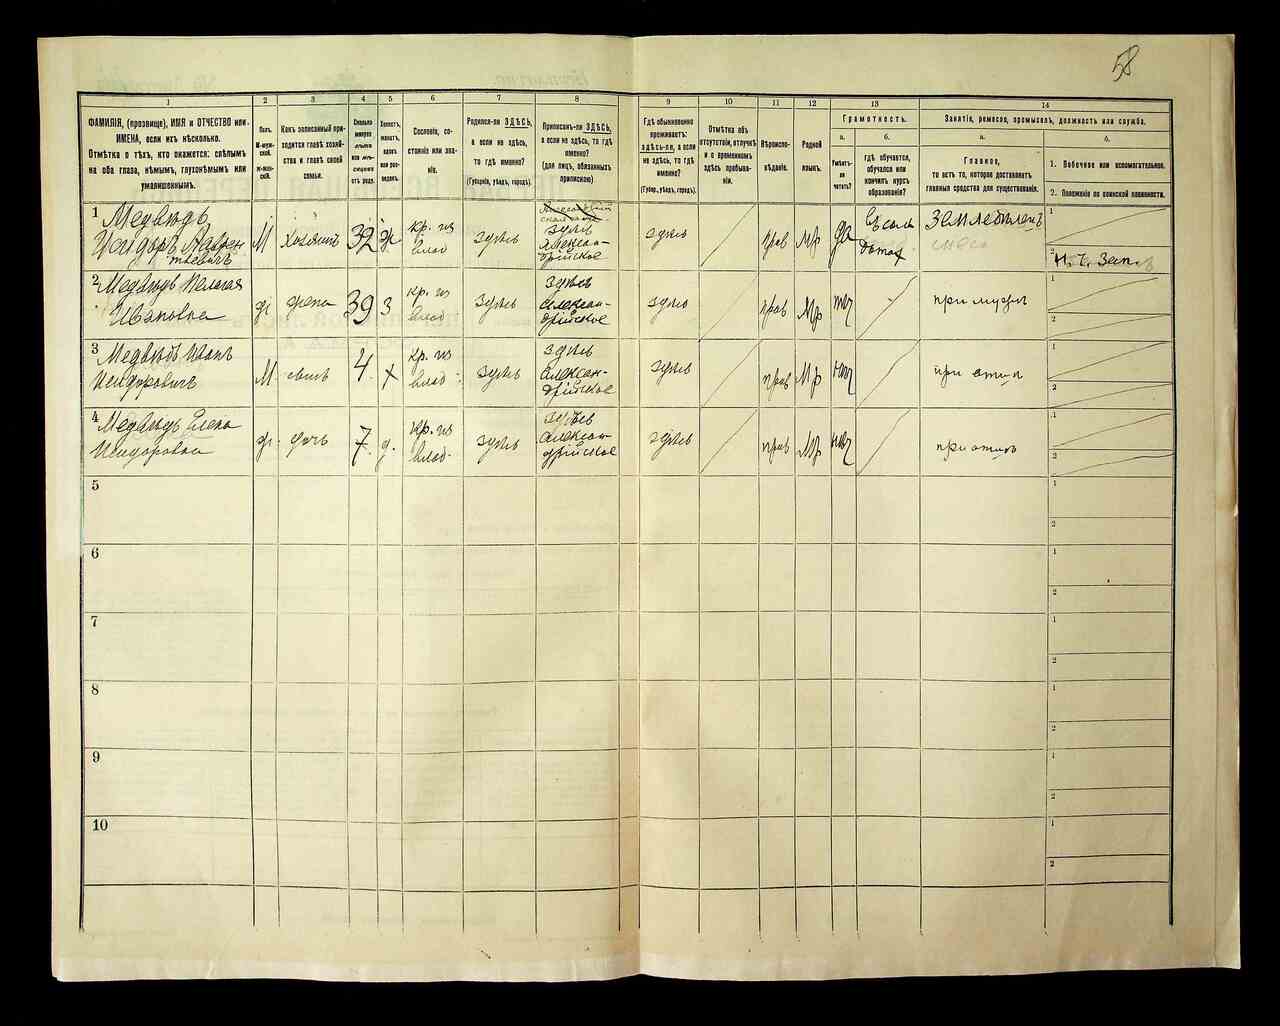 58
1
2
3
4
5
6
7
8
9
10
11
12
13
14
ФАМИЛІЯ, (прозвище), ИМЯ и ОТЧЕСТВО или
ИМЕНА, если ихъ нѣсколько.
Отмѣтка о тѣхъ, кто окажется: слѣпымъ
на оба глаза, нѣмымъ, глухонѣмымъ или
умалишеннымъ.
Полъ.
М-муж-
ской.
Ж-жен-
скій.
Какъ записанный при-
ходится главѣ хозяй-
ства и главѣ своей
семьи.
Сколько
минуло
лѣтъ
или мѣ-
сяцевъ
отъ роду.
Холостъ,
женатъ,
вдовъ
или раз-
веденъ.
Сословіе, со-
стояніе или зва-
ніе.
Родился-ли ЗДѢСЬ,
а если не здѣсь,
то гдѣ именно?
(Губернія, уѣздъ, городъ).
Приписанъ-ли ЗДѢСЬ,
а если не здѣсь, то гдѣ
именно?
(для лицъ, обязанныхъ
припискою)
Гдѣ обыкновенно
проживаетъ:
здѣсь-ли, а если
не здѣсь, то гдѣ
именно?
(Губер., уѣздъ, городъ).
Отмѣтка объ
отсутствіи, отлучкѣ
и о временномъ
здѣсь пребыва-
ніи.
Вѣроиспо-
вѣданіе.
Родной
языкъ.
Грамотность.
а.
Умѣетъ-
ли
читать?
б.
гдѣ обучается,
обучался или
кончилъ курсъ
образованія?
Занятіе, ремесло, промыселъ, должность или служба.
а.
Главное,
то есть то, которое доставляетъ
главныя средства для существованія.
б.
1. Побочное или вспомогательное.
2. Положеніе по воинской повинности.
1
Медвѣдь
Исидоръ
М
хозяинъ
32
ж
кр. из
влад
здѣсь
здѣсь
Алексан-
дрійское
здѣсь
прав
Мр
да
Земледѣлецъ
1
2
2
Медвѣдь Пелагея
Ивановна
жена
39
з
кр. из
влад
здѣсь
здѣсь
Алексан-
дрійское
здѣсь
прав
Мр
нѣт
при мужѣ
1
2
3
Медвѣдь Иван
Исидоровичъ
М
сынъ
4
х
кр. из
влад
здѣсь
здѣсь
Алексан-
дрійское
здѣсь
прав
Мр
нѣт
при отцѣ
1
2
4
Медвѣдь Елена
Исидоровна
дочь
7
д.
кр. из
влад
здѣсь
здѣсь
Алексан-
дрійское
здѣсь
прав
Мр
нѣт
при отцѣ
1
2
5
1
2
6
1
2
7
1
2
8
1
2
9
1
2
10
1
2